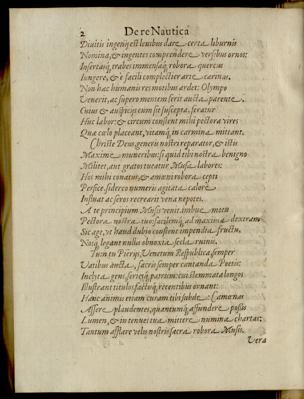 2 De re Nautica
Diuitis ingenij est leuibus dare certa liburnis
Nomina, & ingentes comprendere versibus ornos:
Insertasq́; trabes immensaq́; robora quercus
Iungere, & è facili complectier arte carinas.
Non hac humani res motibus ardet: Olympo
Venerit, ac supero mentem serit aucta parente.
Cuius & auspicijs cum sit suscepta, feratur
Huc labor: & circum consient mihi pectora vires
Quæ cælo placeant, vitamq́; in carmina mittant.
Christe Deus generis nostri reparator, & istis
Maxime muneribus: si quid tibi nostra benigno
Militet, aut grato tueatur Musa labore:
Hos mihi conatus, & amœni robora cepti
Perfice. sidereo numeri agitata calore
Insinat ac seros recreari vena nepotes.
A te principium Musæ venit. imbue motu
Pectora nostra tuo: facilemq́; ad maxima dextram
Sic age, vt haud dubio consiene impendia fructu,
Noxq́; legant nulla obnoxia secla ruinis.
Tum tu Pierijs Venetum Respublica, semper
Vatibus aucta, sacris semper cantanda Poetis:
Inclyta gens, seriesq́; patrum: cui stemmata longos
Illustrant titulos, fastuq́; recentibus ornant:
Hanc animis etiam curam tibi subde: Camœnas
Assere plaudentes, quantumq́; assundere possis
Lumen, & in tenues tua mittere numina chartas:
Tantum afflare velis nostris sacra robora Musis.
Vera